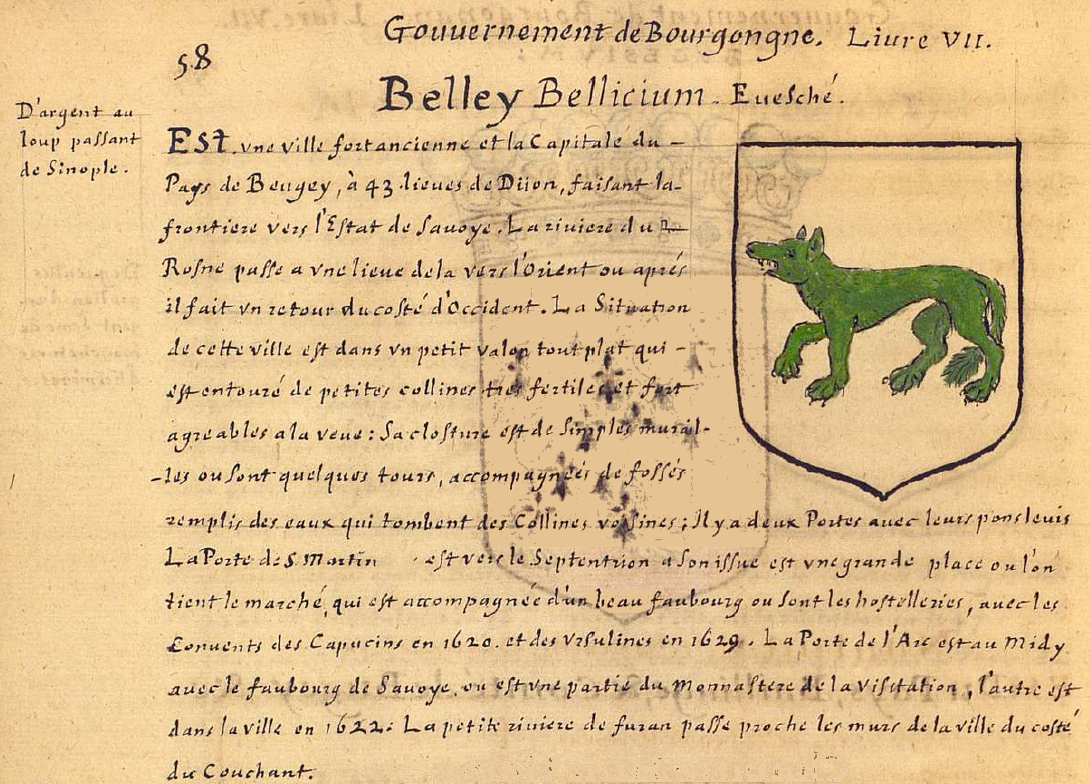 Gouuernement de Bourgongne. Liure VII.
58
Belley Bellicium. Euesché.
D'argent au
loup passant
de Sinople.
Est vne ville fort ancienne et la Capitale du –
Pays de Beugey, à 43 lieues de Diion, faisant la-
frontiere vers l'Estat de Sauoye. La riuiere du R
Rosne passe a vne lieue dela vers l'Orient ou aprés
il fait vn retour du costé d'Occident. La Situation
de cette ville est dans vn petit valon tout plat qui –
est entouré de petites collines tres fertiles et fort
agreables a la veue: Sa closture est de Simples murail-
-les ou sont quelques tours, accompagnées de fossés
remplis des eaux qui tombent des Collines voisines; Il y a deux Portes auec leurs pons leuis
La Porte de S. Martin est vers le Septentrion a son issue est vne grande place ou l'on
tient le marché, qui est accompagnée d'un beau fauboug ou sont les hostelleries, auec les
Conuents des Capucins en 1620. et des Vrsulines en 1629. La Porte de l'Arc est au Midy
auec le faubourg de Sauoye, ou est vne partie du Monnastere de la Visitation, l'autre est
dans la ville en 1622. La petite riuiere de furan passe proche les murs de la ville du costé
du Couchant.